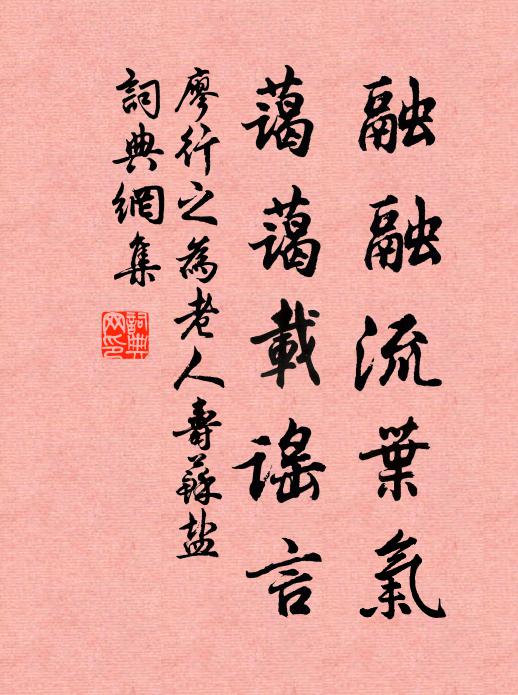 融融流葉氣
藹藹載謠言
廖行之為老人壽蘇盐
詞典網集
詞典网印